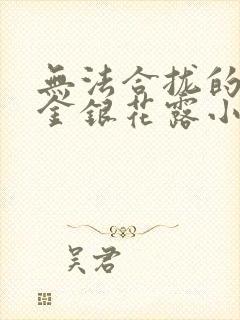 無法合拢的
金銀花露小
吴君